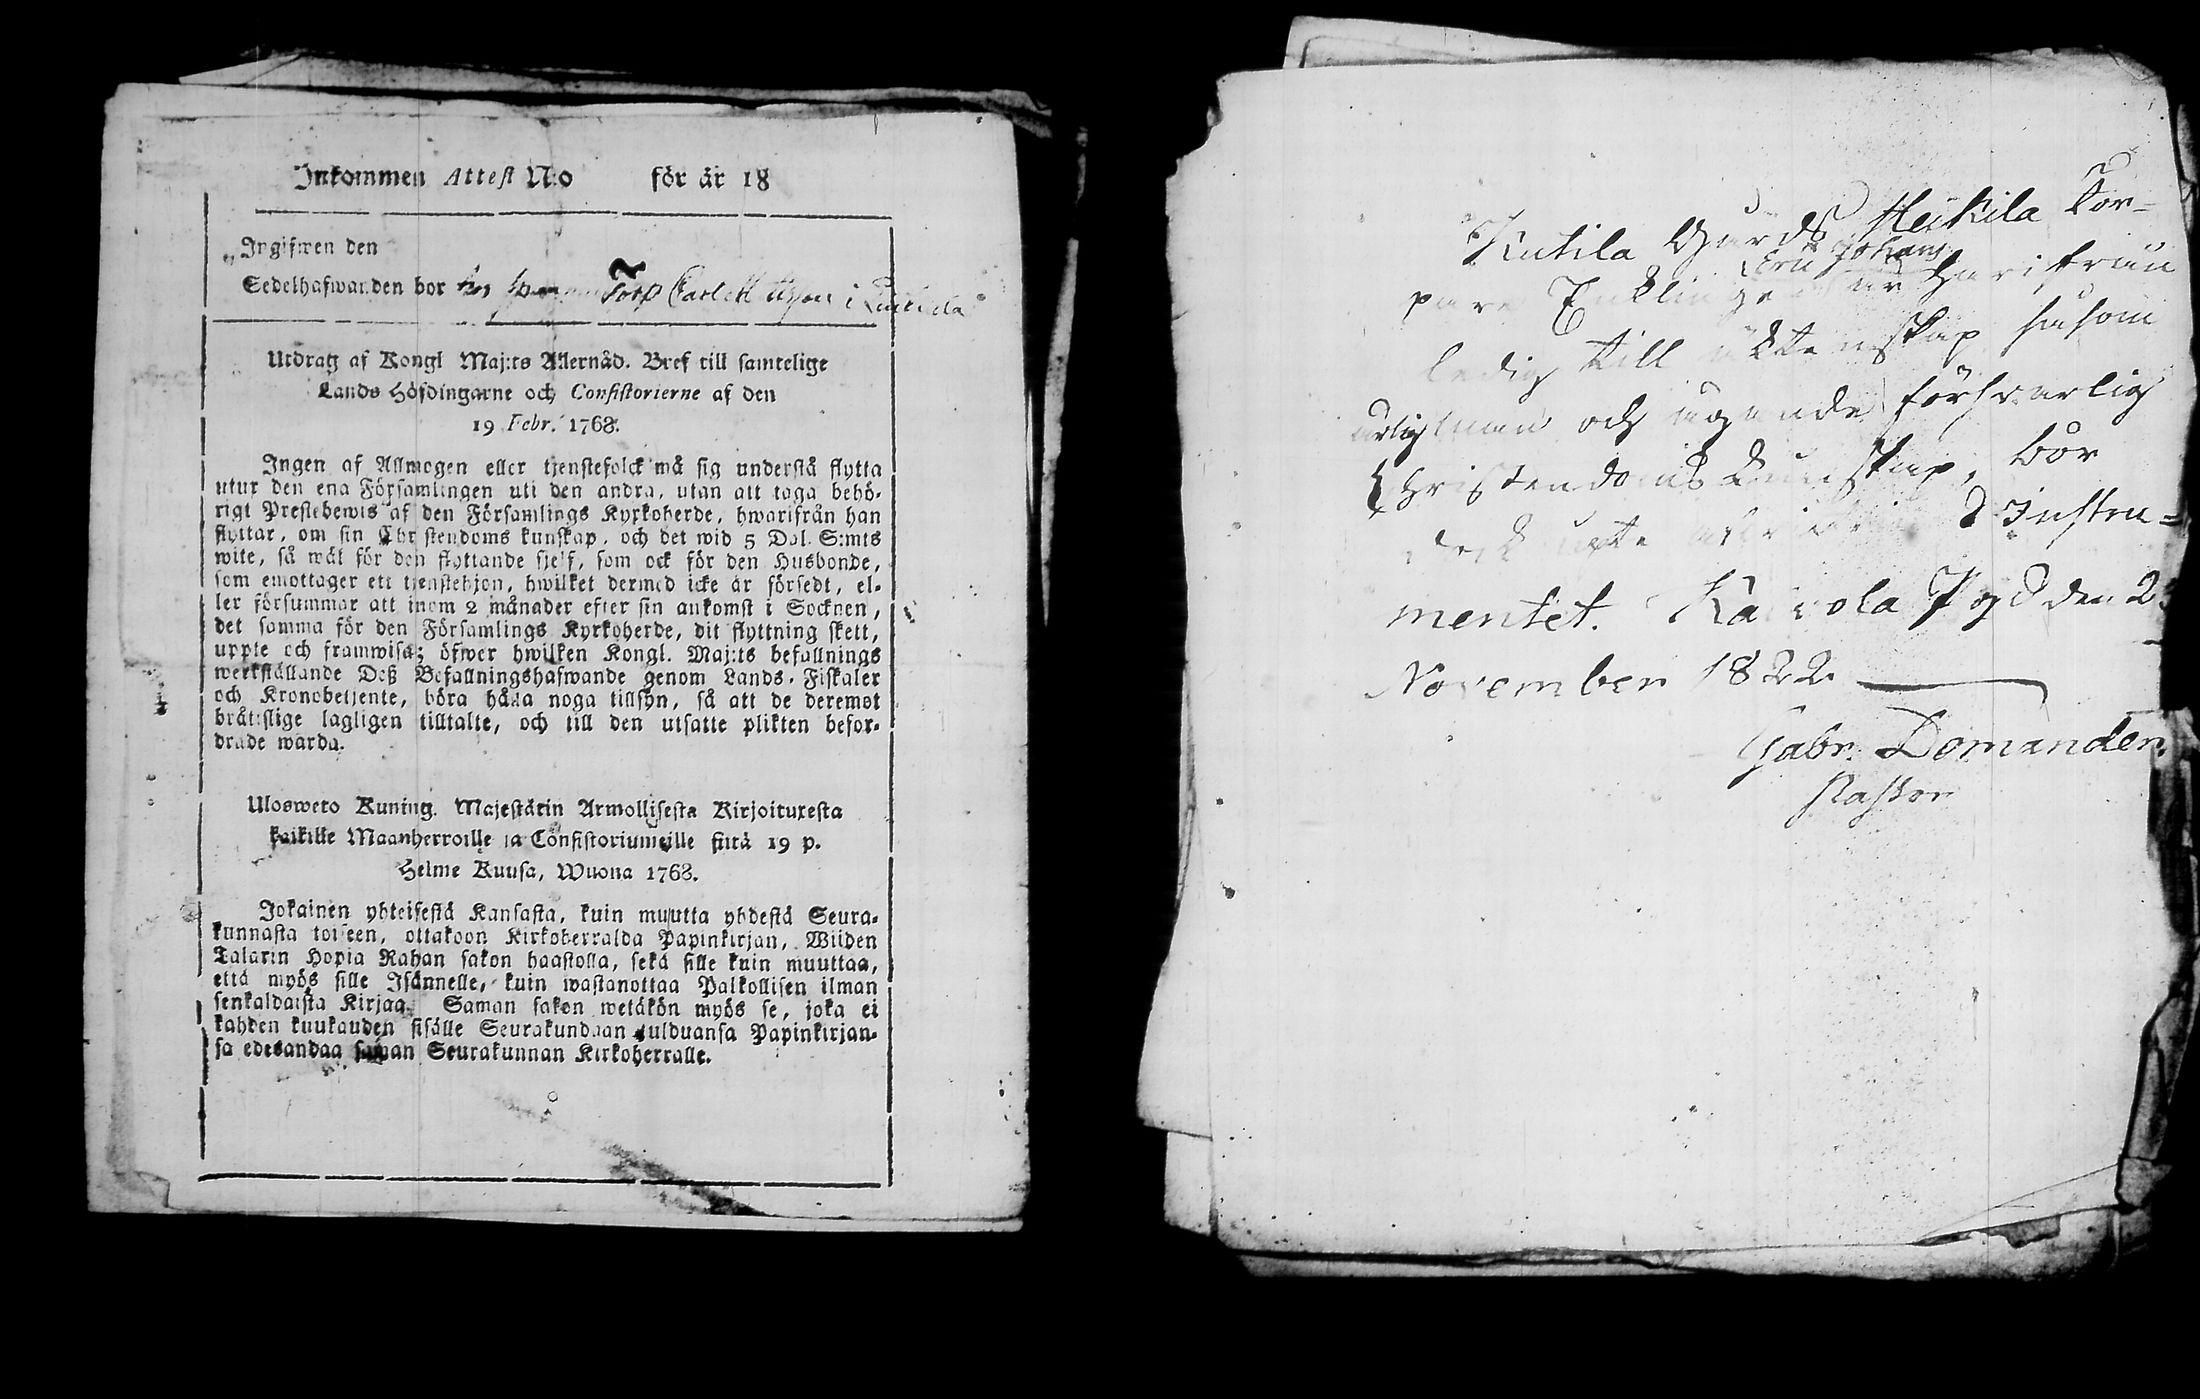 Inkommen Attest N:o för år 18
Ingifwen den
Sedelhafwanden bor hos Torp Carl i
Utdrag af Kongl Maj:ts Allernåd. Bref till samtelige
Lands Höfdingarne och Consistorierne af den
19 Febr. 1768.
Ingen af Allmogen eller tjenstefolck må sig understå flytta
utur den ena Församlingen uti den andra, utan att taga behö-
rigt Prestebewis af den Församlings Kyrkoherde, hwarifrån han
flyttar, om sin Christendoms kunskap, och det wid 5 Dal. S:mts
wite, så wäl för den flyttande sjelf, som ock för den Husbonde,
som emottager ett tjenstehjon, hwilket dermed icke är försedt, el-
ler försummar att inom 2 månader efter sin ankomst i Socknen,
det samma för den Församlings Kyrkoherde, dit flyttning skett,
uppte och framwisa; öfwer hwilken Kongl. Maj:ts befallnings
werkställande Deß Befallningshafwande genom Lands-Fiskaler
och Kronobetjente, böra hålla noga tillsyn, så att de deremot
bråtislige lagligen tilltalte, och till den utsatte plikten befor-
drade warda.
Ulosweto Kuning. Majestätin Armollisesta Kirjoituxesta
kaikille Maanherroille ja Consistoriumeille siitä 19 p.
Helme Kuusa, Wuona 1768.
Jokainen yhteisestä Kansasta, kuin muutta yhdestä Seura-
kunnasta toiseen, ottakoon Kirkoherralda Papinkirjan, Wiiden
Talarin Hopia Rahan sakon haastolla, sekä sille kuin muuttaa,
että myös sille Isännelle, kuin wastanottaa Palkollisen ilman
senkaldaista Kirjaa. Saman sakon wetäkön myös se, joka ei
kahden kuukauden sisälle Seurakundaan tulduansa Papinkirjan-
sa edesandaa saman Seurakunnan Kirkoherralle.
Kutila Gårds Heikila Tor-
pare Enklinge Johans härifrån
ledig till äktenskap såsom
ärlig man och ägande förswarlig
Christendoms kunskap, bör
dock Instru-
mentet. Kalvola Pgd den 2
November 1822.
Gabr. Domander.
Pastor